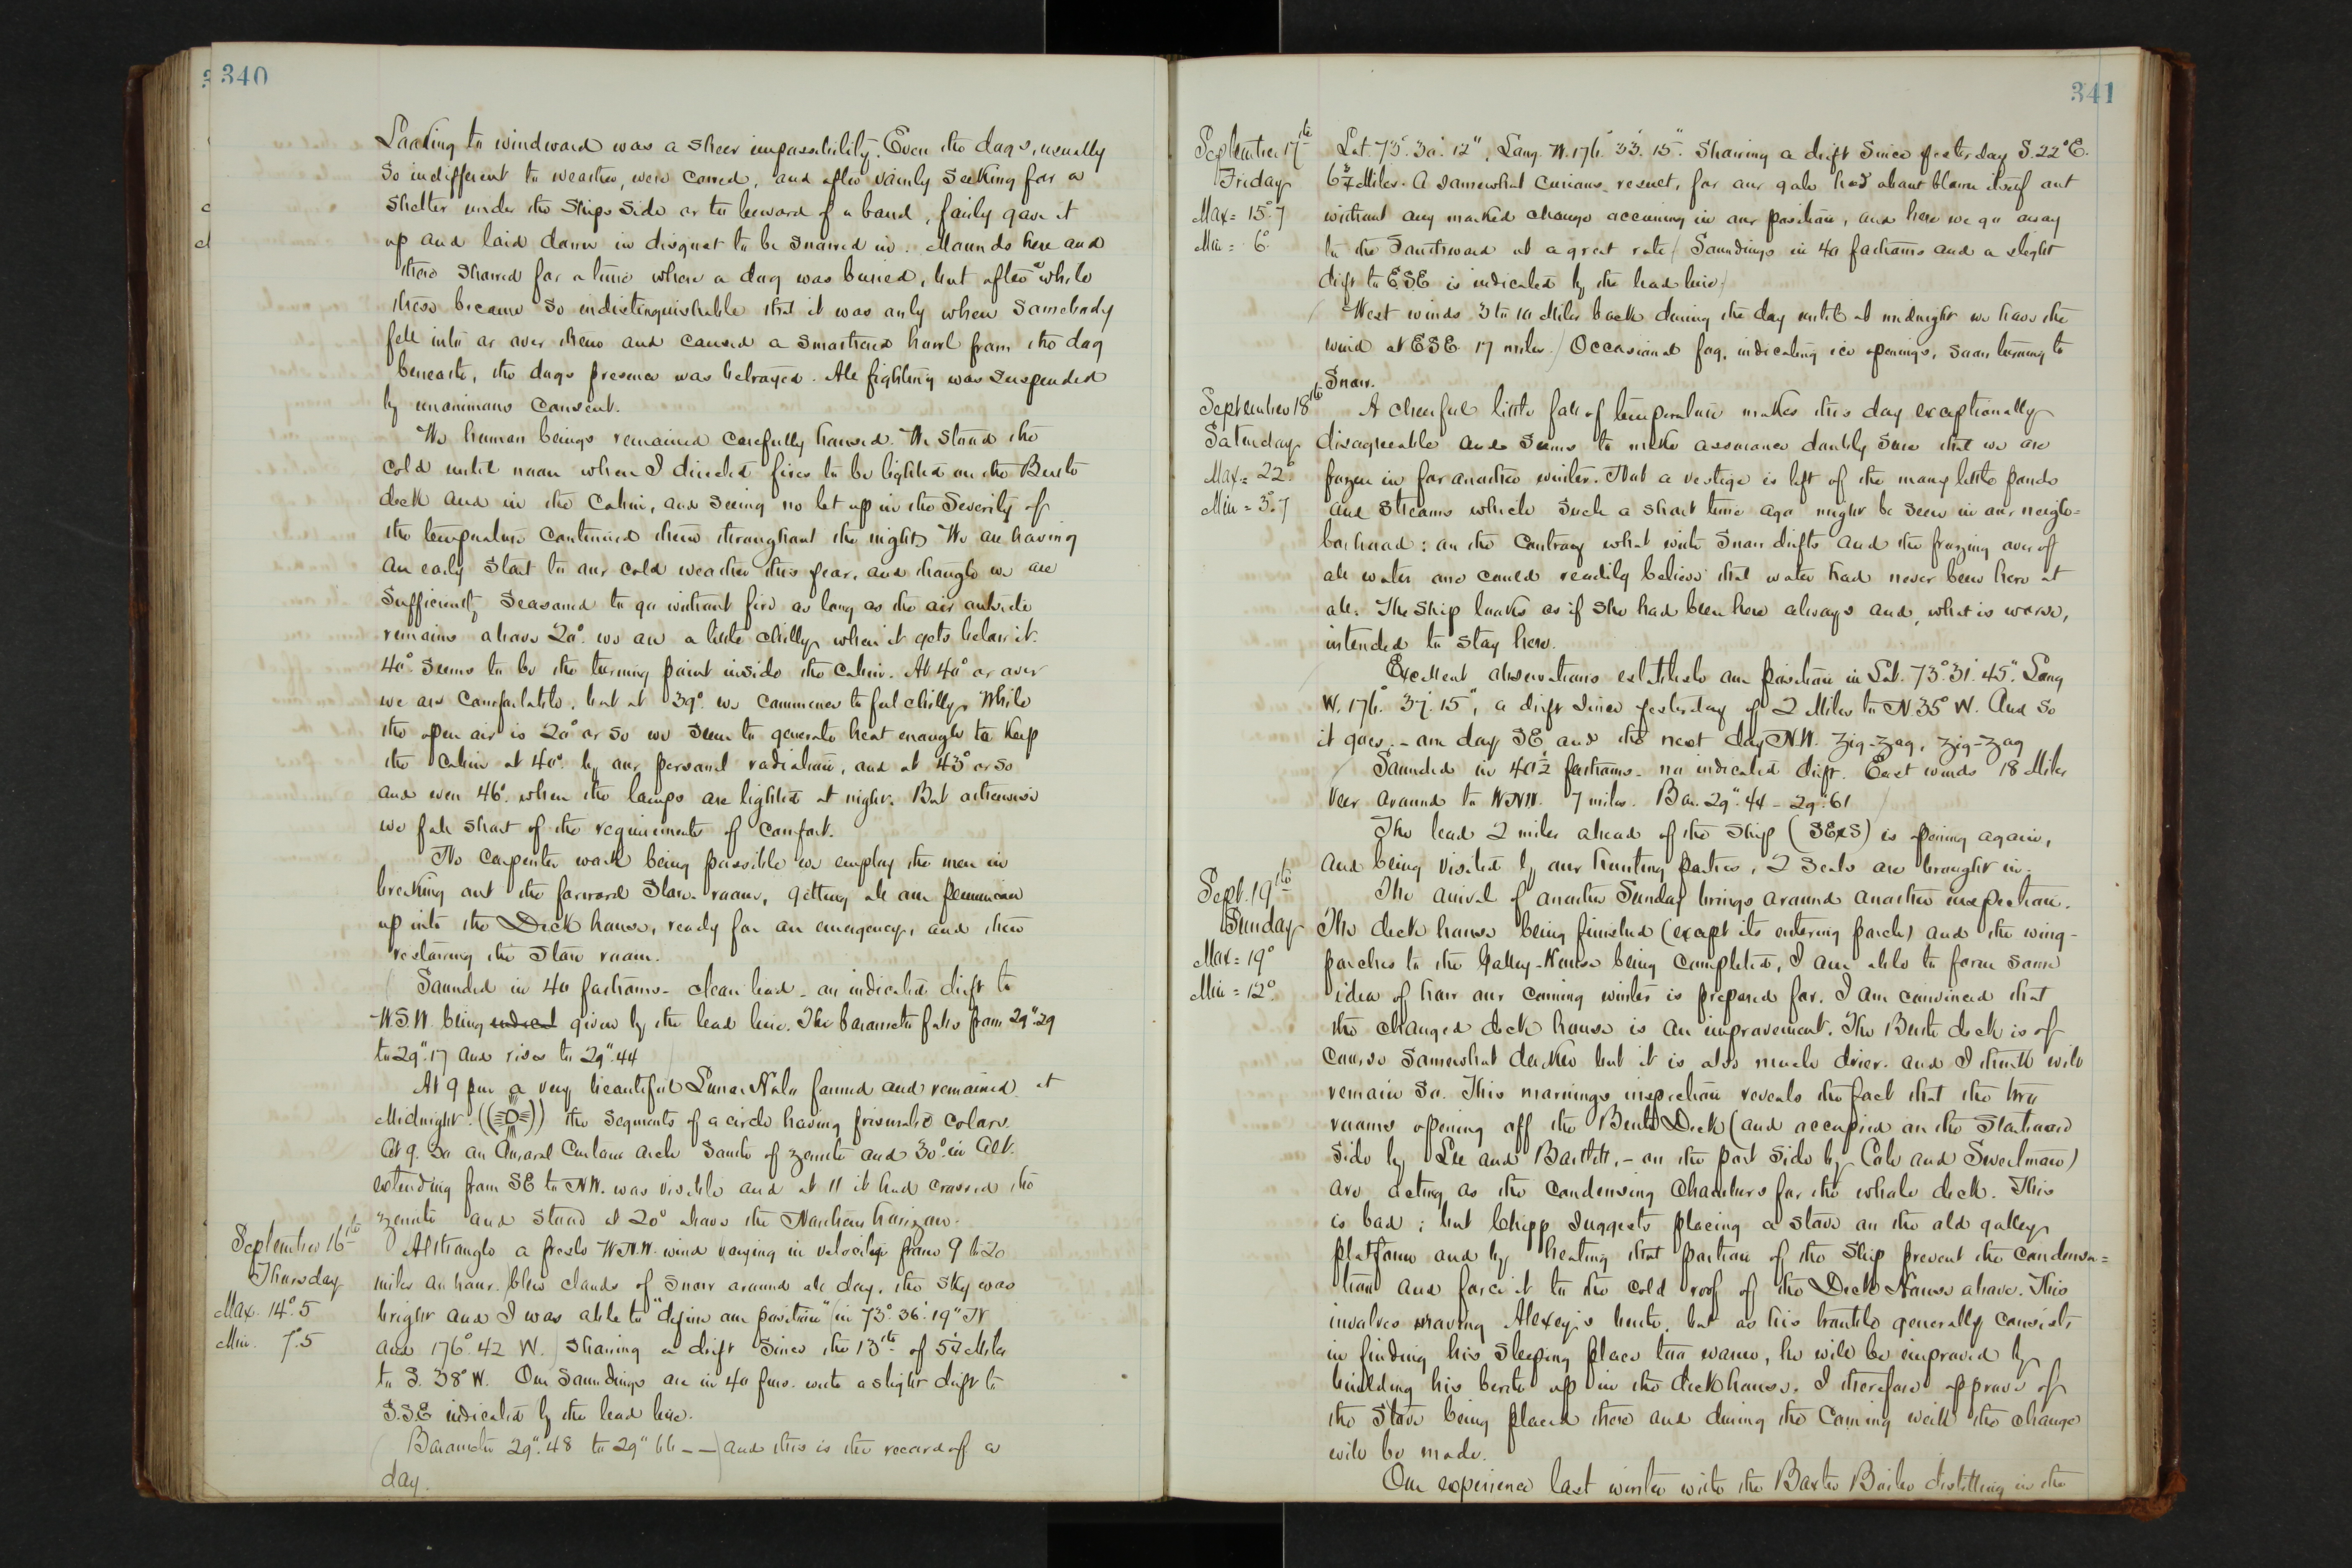 340
Looking to windward was a sheer impossibility. Even the dogs, usually
so indifferent to weather, were cowed, and after vainly seeking for a
shelter under the ships side or to leeward of a band, fairly gave it
up and laid down in disgust to be snowed in. Mounds here and
there showed for a time where a dog was buried, but after a while
these became so indistinguishable that it was only when somebody
fell into or over them and caused a smothered howl from the dog
beneath, the dogs presence was betrayed. All fighting was suspended
by unanimous consent.
We human beings remained carefully housed. We stood the
cold until noon when I directed fires to be lighted on the Berth
deck and in the Cabin, and seeing no let up in the severity of
the temperature continued them throughout the night. We are having
an early start to our cold weather this year, and though we are
sufficiently seasoned to go without fire as long as the air outside
remains above 20°. we are a little chilly when it gets below it.
40° seems to be the turning point inside the cabin. At 40° or over
we are comfortable, but at 39°. we commence to feel chilly. While
the open air is 20° or so we seem to generate heat enough to keep
the cabin at 40°. by our personal radiation, and at 43° or so
and even 46°. when the lamps are lighted at night. But otherwise
we fall short of the requirements of comfort.
No carpenter work being possible we employ the men in
breaking out the forward store-room, getting all our pemmican
up into the Deck house, ready for an emergency, and then
restowing the store room.
Sounded in 40 fathoms - clean lead - an indicated drift to
W.S.W. being indicat given by the lead line. The barometer falls from 29".29
to 29".17 and rises to 29".44
At 9 pm a very beautiful Lunar Halo formed and remained at
Midnight. the segments of a circle having prismatic colors.
At 9.30 an Auroral Curtain arch South of zenith and 30°. in Alt.
extending from SE to NW. was visible and at 11 it had crossed the
zenith and stood at 20° above the Northern horizon.
September 16th
Thursday
Max. 14°.5
Min. 7°.5
Although a fresh W.N.W. wind varying in velocity from 9 to 20
miles an hour. blew clouds of snow around all day, the sky was
bright and I was able to "define our position" in 73°. 36'. 19" N
and 176°. 42 W. showing a drift since the 13th of 5½ Miles
to S. 38° W. Our soundings are in 40 fms. with a slight drift to
S.S.E indicated by the lead line.
Barometer 29".48 to 29".66 - - and this is the record of a
day.
341
September 17th
Friday
Max = 15°.7
Min = 6°.
Lat. 73°. 30'. 12", Long W. 176°. 33'. 15". Showing a drift since yesterday S. 22° E.
Miles. A somewhat curious result, for our gale had about blown itself out
without any marked change occurring in our position, and here we go away
to the Southward at a great rate. Soundings in 40 fathoms and a slight
drift to ESE is indicated by the lead line.
West winds 3 to 10 Miles back during the day until at midnight we have the
wind at ESE. 17 miles. Occasional fog, indicating ice openings, soon turning to
snow.
September 18th
Saturday
Max = 22°.
Min = 3°.7
A cheerful little fall of temperature makes this day exceptionally
disagreeable and seems to make assurance doubly sure that we are
frozen in for another winter. Not a vestige is left of the many little ponds
and streams which such a short time ago might be seen in our neigh=
borhood: on the contrary what with snow drifts and the freezing over of
all water one could readily believe that water had never been here at
all. The ship looks as if she had been here always and, what is worse,
intended to stay here.
Excellent observations establish our position in Lat. 73°. 31'. 45". Long
W. 176°. 37'. 15", a drift since yesterday of 2 Miles to N. 35° W. And so
it goes. - one day SE and the next day N.W. zig-zag, zig-zag
Sounded in 40½ fathoms - no indicated drift. East winds 18 Miles
veer around to WNW. 7 miles. Bar. 29".44 - 29".61
The lead 2 miles ahead of the ship (SExS) is opening again,
and being visited by our hunting parties, 2 seals are brought in.
Sept. 19th
Sunday
Max = 19°
Min = 12°.
The arrival of another Sunday brings around another inspection.
The deck house being finished (except its entering porch) and the wing-
porches to the Galley-House being completed, I am able to form some
idea of how our coming winter is prepared for. I am convinced that
the changed deck house is an improvement. The Berth deck is of
course somewhat darker but it is also much drier. and I think will
remain so. This mornings inspection reveals the fact that the two
rooms opening off the Berth Deck (and occupied on the Starboard
side by Lee and Bartlett, - on the port side by Cole and Sweetman)
are acting as the condensing chambers for the whole deck. This
is bad; but Chipp suggests placing a stove on the old galley
platform and by heating that portion of the ship prevent the condensa=
tion and force it to the cold roof of the Deck House above. This
involves moving Alexey's berth, but as his trouble generally consists
in finding his sleeping place too warm, he will be improved by
building his berth up in the deck house. I therefore approve of
the stove being placed there and during the coming week the change
will be made.
Our experience last winter with the Baxter Boiler distilling in the